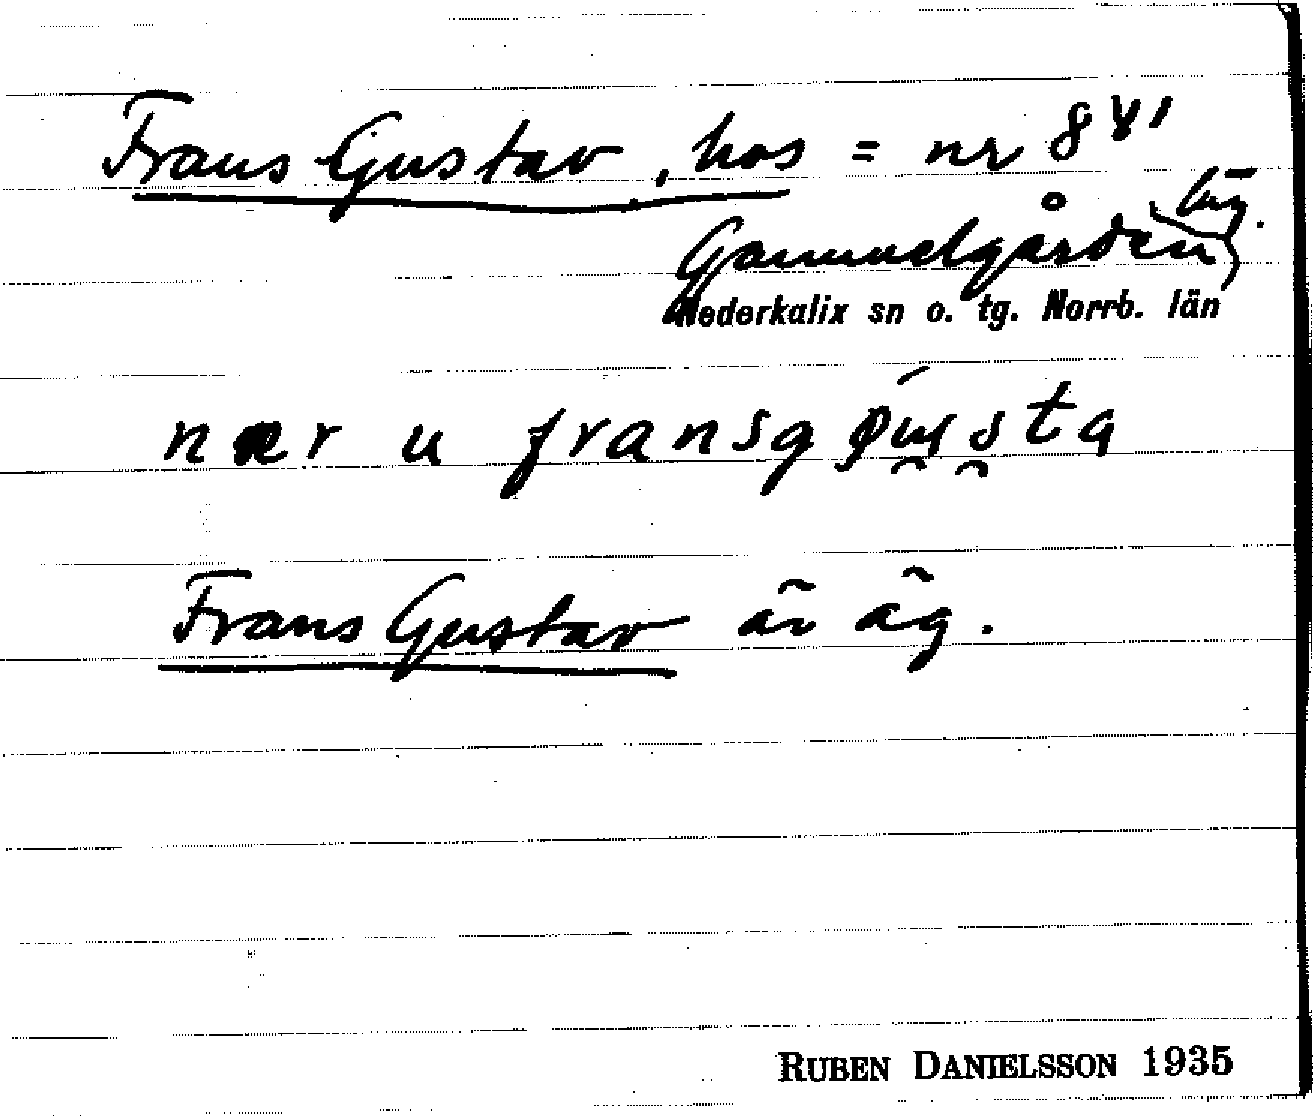 Frans Gustav, hos = nr 8 VI
Gammelgården, by.
Nederkalix sn o. tg. Norrb. län
nær u fransg
Frans Gustav är äg.
RUBEN DANIELSSON 1935